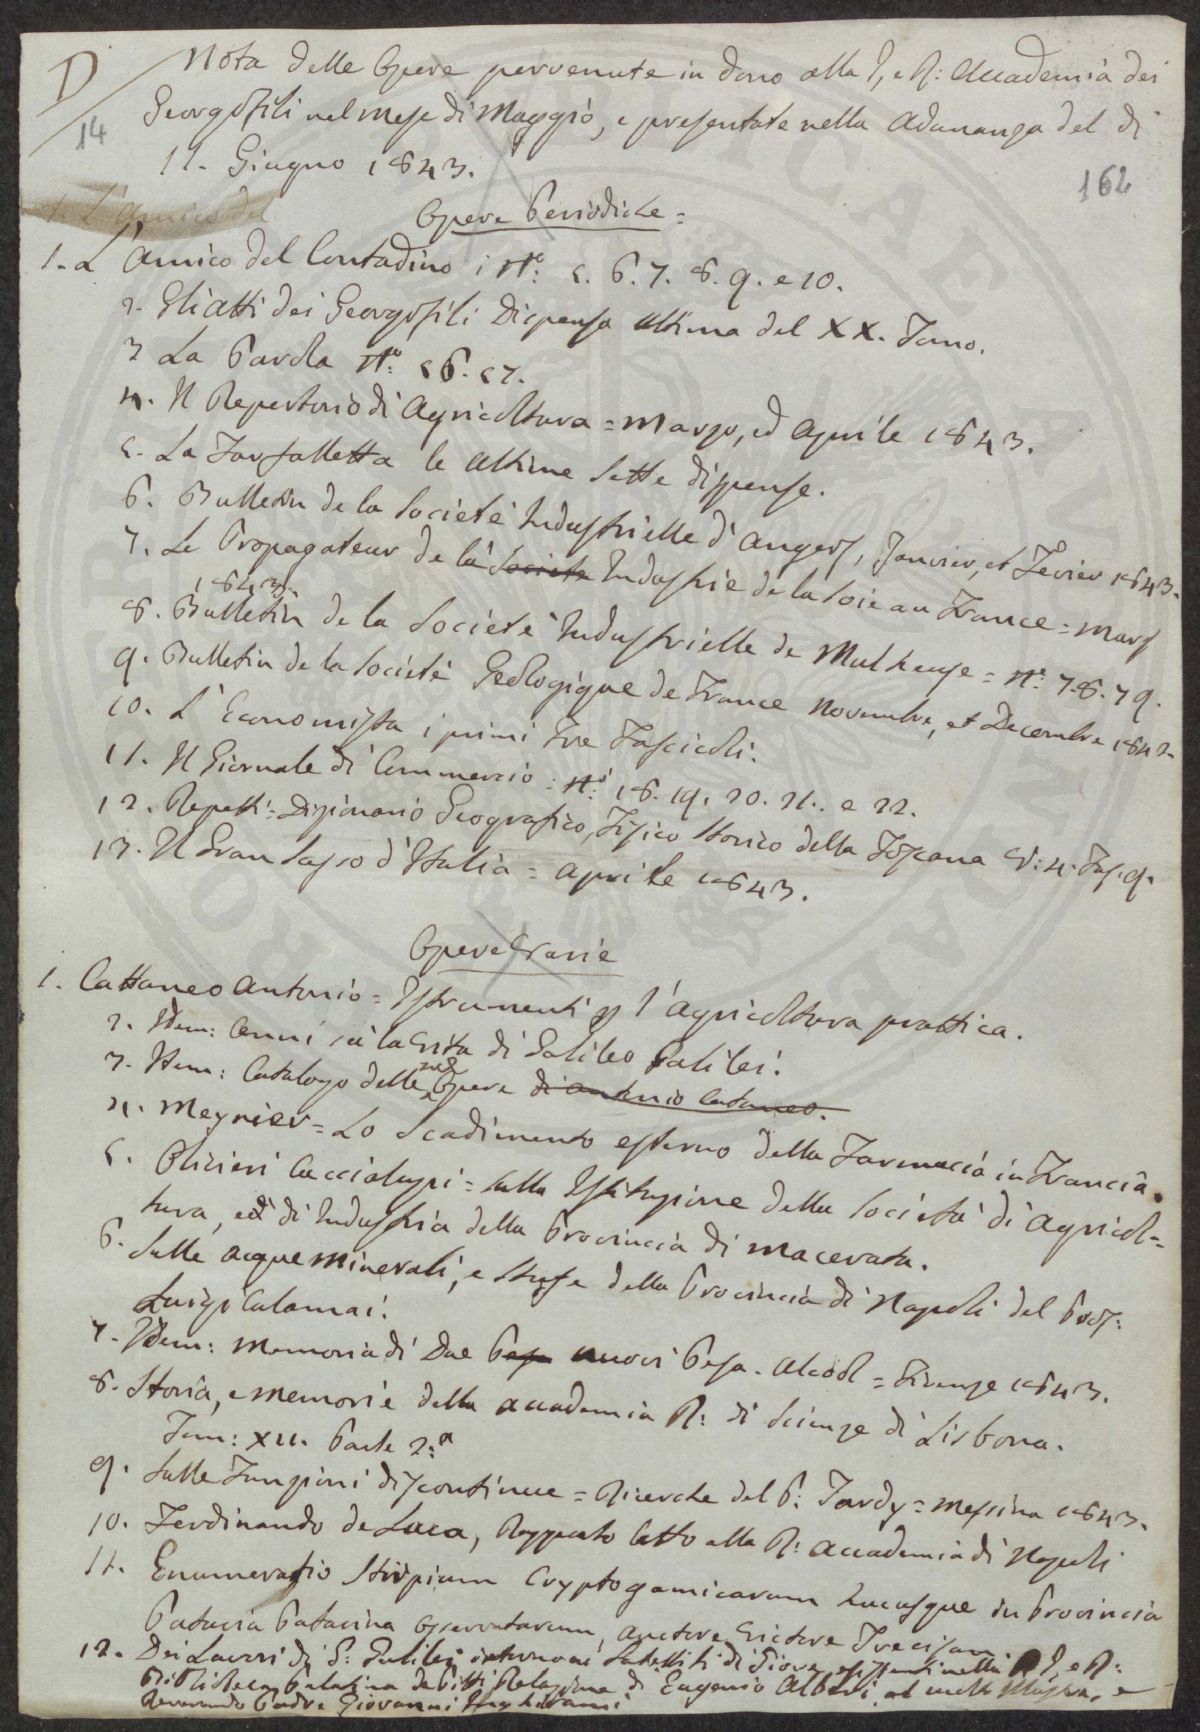 D
14
Nota delle Opere pervenute in dono alla I, e R: Accademia dei
Georgofili nel mese di Maggio, e presentate nella Adunanza del dì
11. Giugno 1843.
162
1. L'Amico del
Opere Periodiche =
1. L'Amico del Contadino i N.° 5. 6. 7. 8. 9. e 10.
2. Gli Atti dei Georgofili Dispensa ultima del XX. Tomo.
3 La Parola N.° 56. 57.
4. Il Repertorio di Agricoltura = Marzo, ed Aprile 1843.
5. La Farfalletta le ultime sette dispense.
6. Bulletin de la Societé Industrielle d'Angers, Janvier, et Fevier 1843.
7. Le Propagateur de la Societe Industrie de la Soie au France = Mars
1843.
8. Bulletin de la Societé Industrielle de Mulheuse = N.° 78. 79.
9. Bulletin de la Societé Geologique de France Novembre, et Decembre 1842.
10. L'Economista i primi tre Fascicoli.
11. Il Giornale di Commercio = N.i 18. 19. 20. 21. e 22.
12. Repetti = Dizionario Geografico, Fisico Storico della Toscana V: 4. Fas. 9.
13. Il Gran Sasso d'Italia = Aprile 1843.
Opere Varie
1. Cattaneo Antonio = Istrumenti p l'Agricoltura prattica.
2. Idem: Cenni su la Vita di Galileo Galilei.
3. Item: Catalogo delle sue Opere di Antonio Cataneo.
4. Meynier = Lo Scadimento esterno della Farmacia in Francia.
5. Olivieri Cacciolupi = Sulla Istituzione della Società di Agricol=
tura, ed di Industria della Provincia di Macerata.
6. Sulle Acque Minerali, e Stufe della Provincia di Napoli del Prof:
Luigi Calamai.
7. Idem: Memoria di Due Pesa nuovi Pesa-Alcool = Firenze 1843.
8. Storia, e Memorie della Accademia R: di Scienze di Lisbona.
Tom: XII. Parte 2:a
9. Sulle Funzioni discontinue = Ricerche del P: Tardy = Messina 1843.
10. Ferdinando de Luca, Rapporto letto alla R: Accademia di Napoli
11. Enumeratio Stirpium Cryptogamicarum hucusque in Provincia
Patavina observatarum, Auctore Victore Trevisan
12. Dei Lavori di G: Galilei intorno ai Satelliti di Giove esistenti nella I, e R:
Biblioteca Palatina de Pitti Relazione di Eugenio Alberi al molto e
Reverendo Padre Giovanni Inghirami